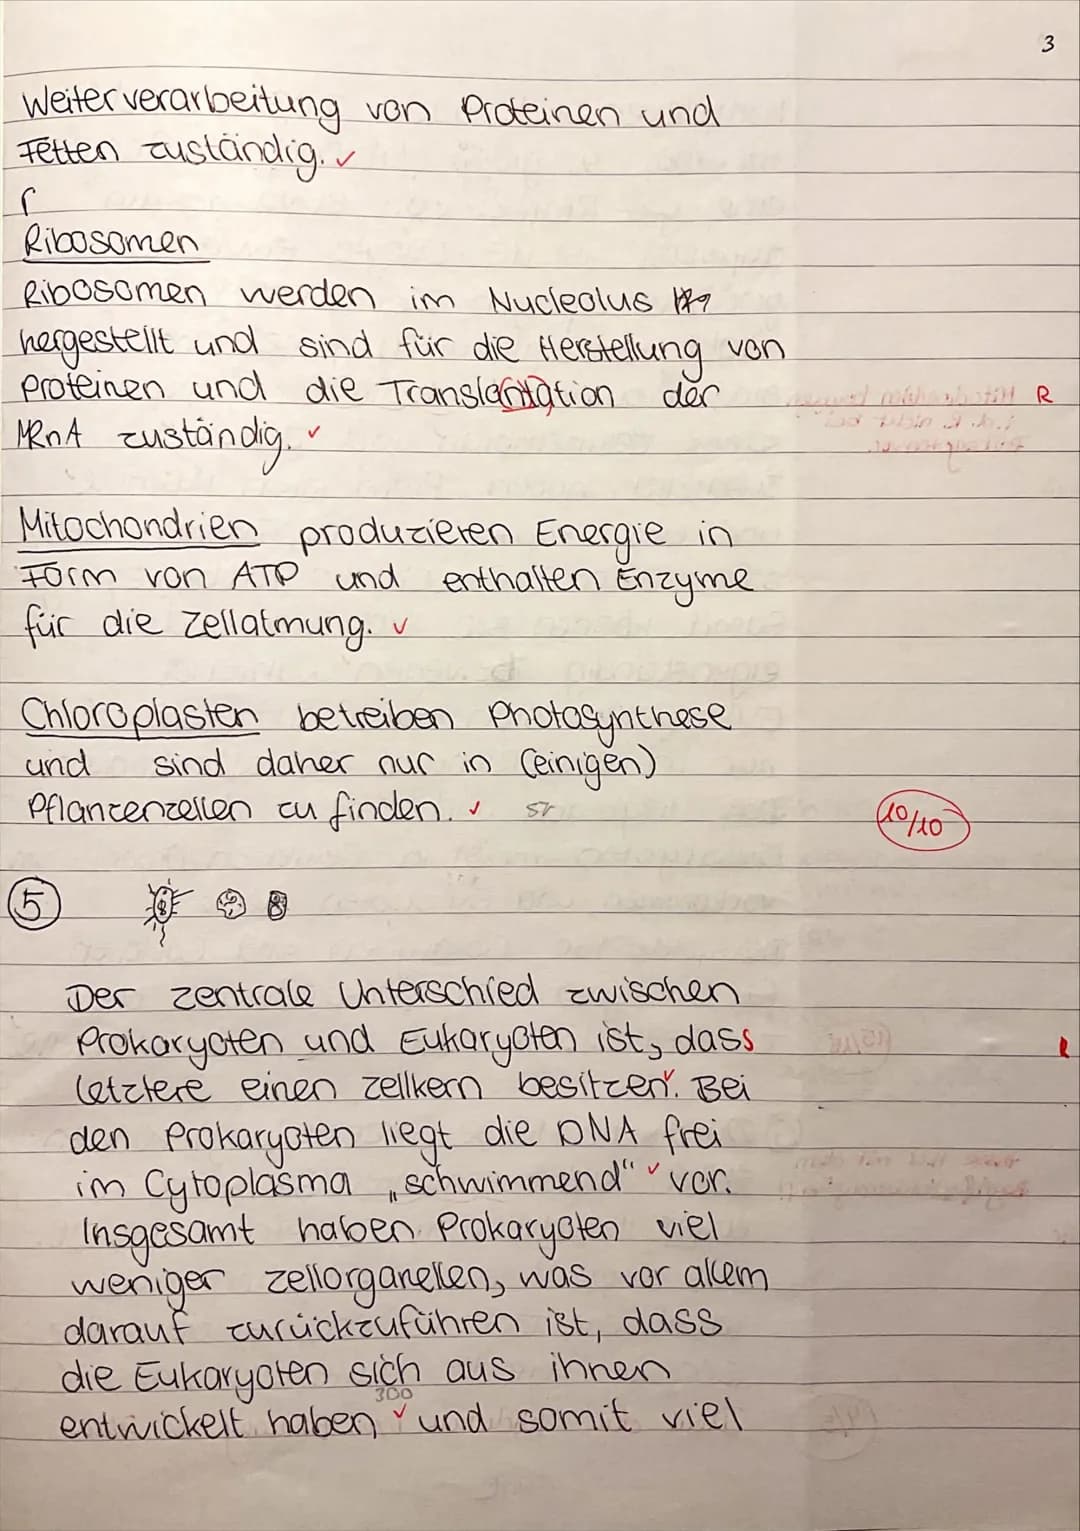 3
Weiterverarbeitung von Proteinen und
Fetten zuständig. ✓
Ribosomen
Ribosomen werden im Nucleolus
hergestellt und sind für die Herstellung von
Proteinen und die Translantation der R
MRnA zuständig. ✓
Mitochondrien produzieren Energie in
Form von ATP und enthalten Enzyme
für die Zellatmung. ✓
Chloroplasten betreiben Photosynthese
und sind daher nur in (einigen)
Pflanzenzellen zu finden. ✓
10/10
5
Der zentrale Unterschied zwischen
Prokaryoten und Eukaryoten ist, dass R
letztere einen Zellkern besitzen ✓. Bei
den Prokaryoten liegt die DNA frei
im Cytoplasma „schwimmend“ ✓ vor.
Insgesamt haben Prokaryoten viel
weniger Zellorganellen, was vor allem
darauf zurückzuführen ist, dass
die Eukaryoten sich aus ihnen
300
entwickelt haben ✓ und somit viel